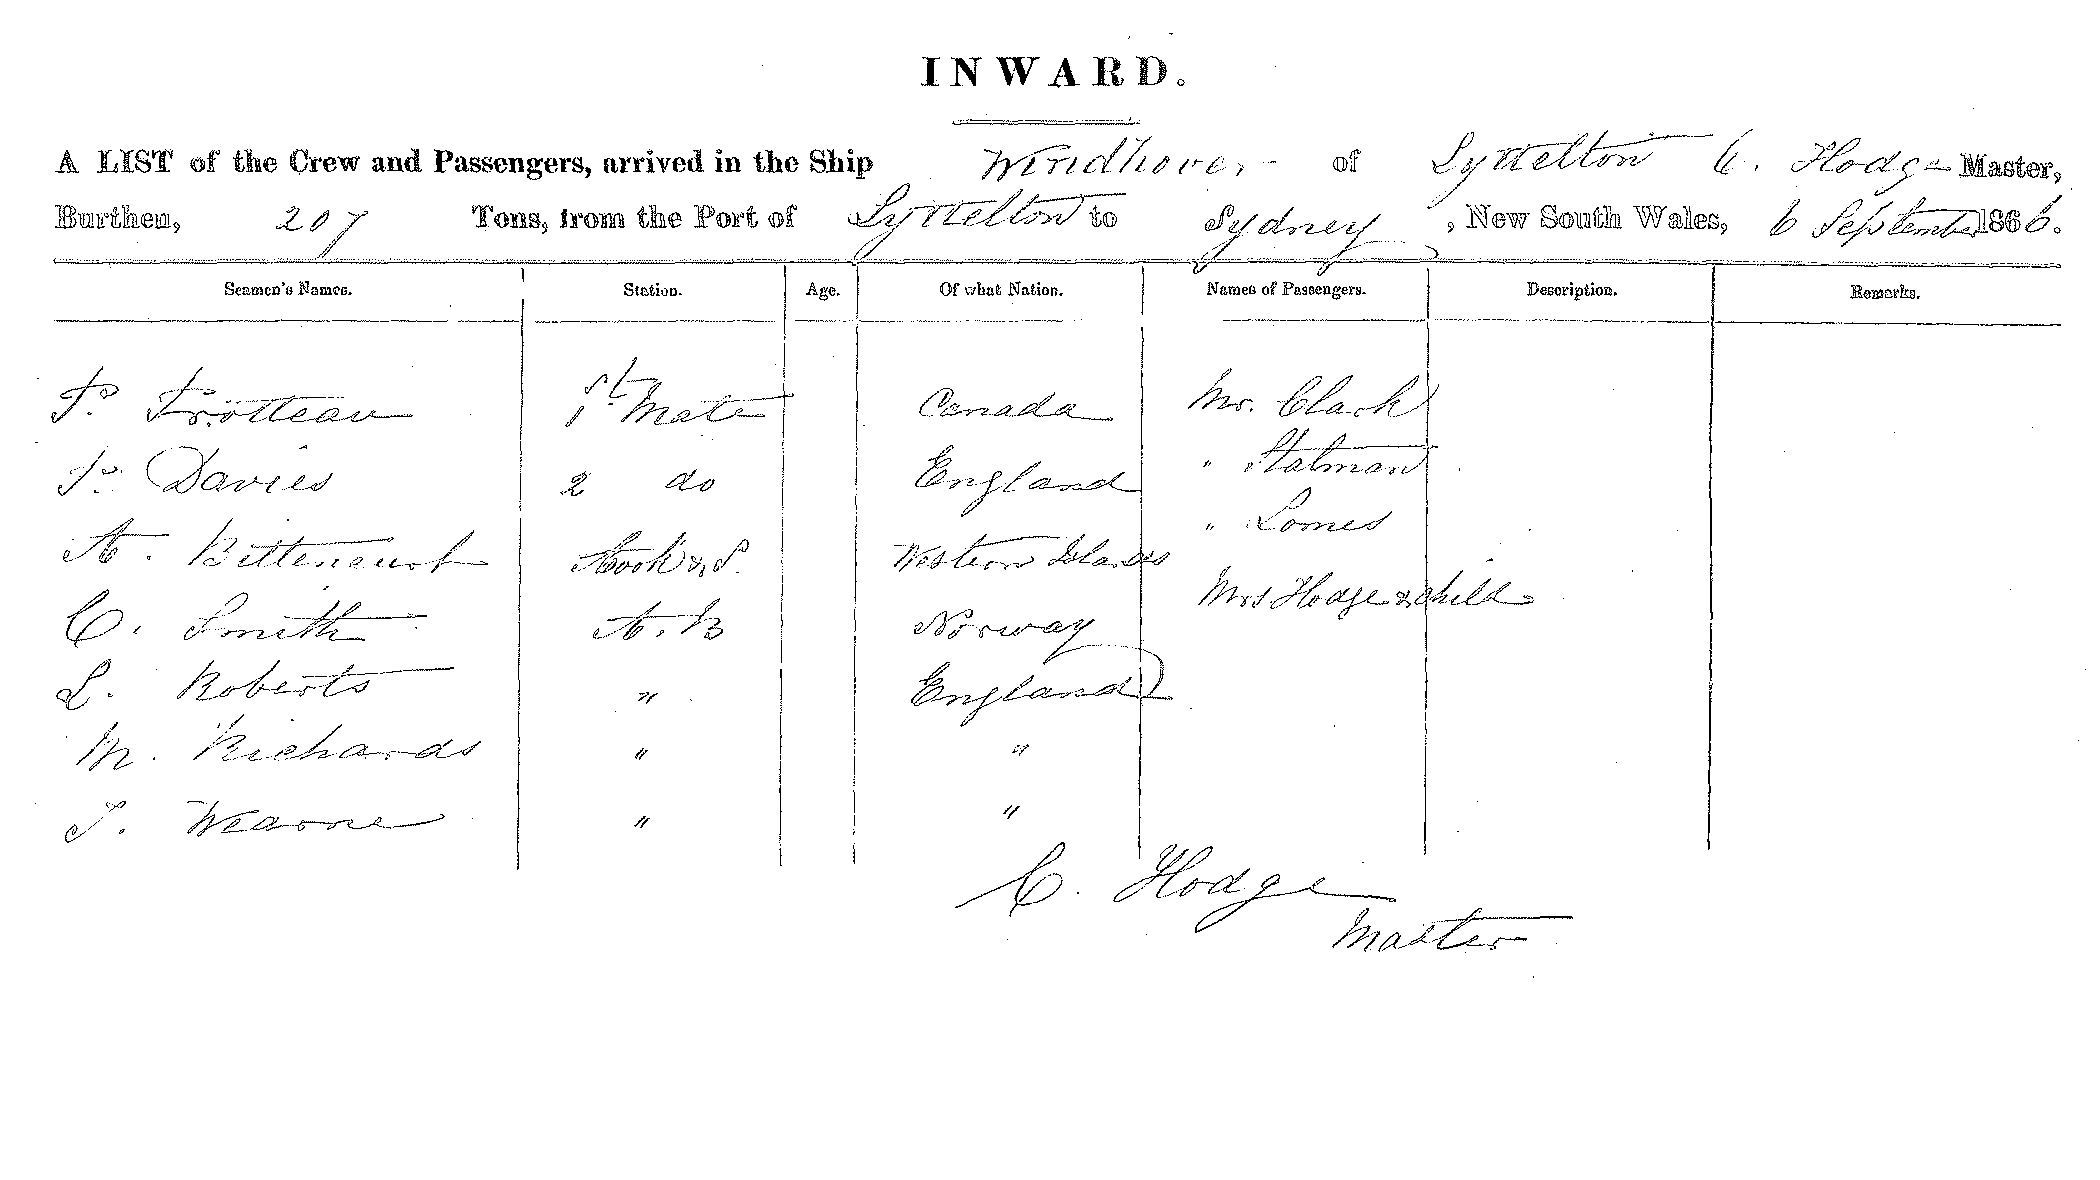 INWARD.
A LIST of the Crew and Passengers, arrived in the Ship Windhover of Lyttelton C. Hodge Master,
Burthen, 207 Tons, from the Port of Lyttelton to Sydney, New South Wales, 6 September 1866.
Seamen's Names. Station. Age. Of what Nation. Names of Passengers. Description. Remarks.
Trotteau 1st Mate Canada Mr. Clark
Davies 2 do England " Statman
A. Bittencurt Cook & S. Western Islands " Lomes
C. Smith A.B Norway Mrs Hodge & child
L. Roberts " England
M. Richards " "
Wearne " "
C. Hodge
Master